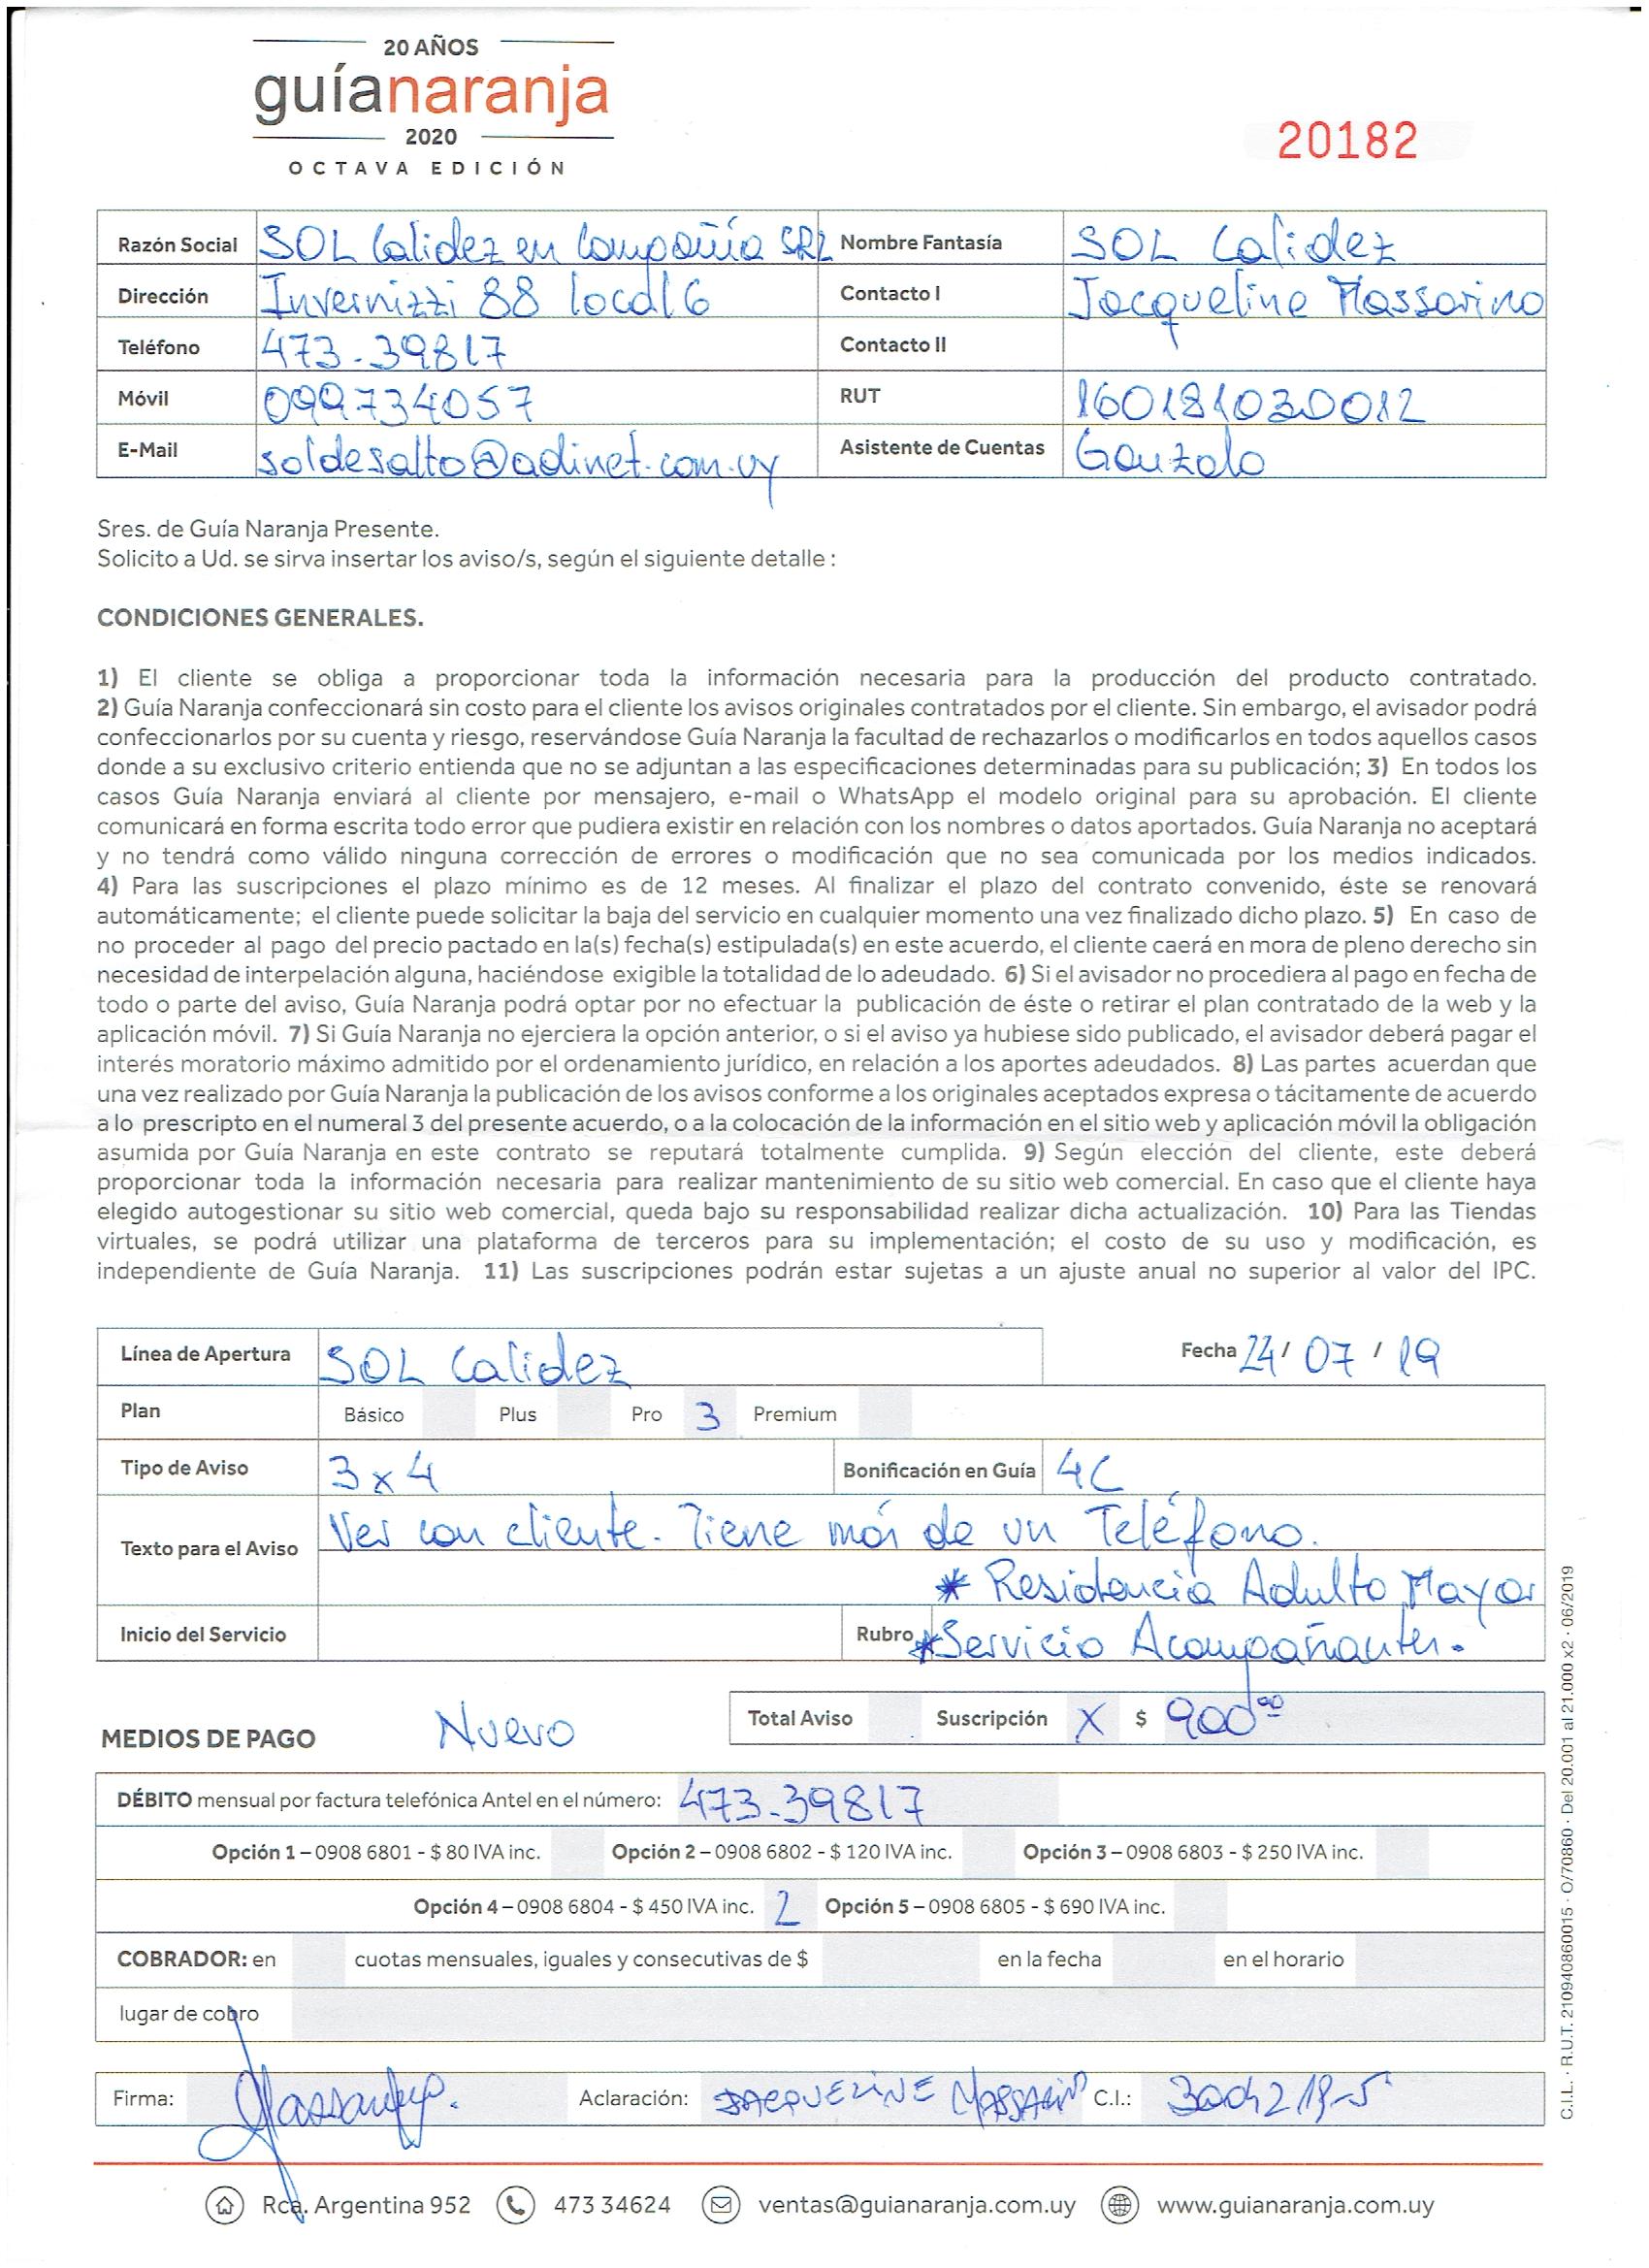 20 AÑOS
guíanaranja
2020
OCTAVA EDICIÓN
20182
Razón Social SOL Calidez en Compañía SRL Nombre Fantasía SOL Calidez
Dirección Invernizzi 88 local 6 Contacto I Jacqueline Massarino
Teléfono 473-39817 Contacto II
Móvil 099734057 RUT 160181030012
E-Mail soldesalto@adinet.com.uy Asistente de Cuentas Gonzalo
Sres. de Guía Naranja Presente.
Solicito a Ud. se sirva insertar los aviso/s, según el siguiente detalle :
CONDICIONES GENERALES.
1) El cliente se obliga a proporcionar toda la información necesaria para la producción del producto contratado.
2) Guía Naranja confeccionará sin costo para el cliente los avisos originales contratados por el cliente. Sin embargo, el avisador podrá
confeccionarlos por su cuenta y riesgo, reservándose Guía Naranja la facultad de rechazarlos o modificarlos en todos aquellos casos
donde a su exclusivo criterio entienda que no se adjuntan a las especificaciones determinadas para su publicación; 3) En todos los
casos Guía Naranja enviará al cliente por mensajero, e-mail o WhatsApp el modelo original para su aprobación. El cliente
comunicará en forma escrita todo error que pudiera existir en relación con los nombres o datos aportados. Guía Naranja no aceptará
y no tendrá como válido ninguna corrección de errores o modificación que no sea comunicada por los medios indicados.
4) Para las suscripciones el plazo mínimo es de 12 meses. Al finalizar el plazo del contrato convenido, éste se renovará
automáticamente; el cliente puede solicitar la baja del servicio en cualquier momento una vez finalizado dicho plazo. 5) En caso de
no proceder al pago del precio pactado en la(s) fecha(s) estipulada(s) en este acuerdo, el cliente caerá en mora de pleno derecho sin
necesidad de interpelación alguna, haciéndose exigible la totalidad de lo adeudado. 6) Si el avisador no procediera al pago en fecha de
todo o parte del aviso, Guía Naranja podrá optar por no efectuar la publicación de éste o retirar el plan contratado de la web y la
aplicación móvil. 7) Si Guía Naranja no ejerciera la opción anterior, o si el aviso ya hubiese sido publicado, el avisador deberá pagar el
interés moratorio máximo admitido por el ordenamiento jurídico, en relación a los aportes adeudados. 8) Las partes acuerdan que
una vez realizado por Guía Naranja la publicación de los avisos conforme a los originales aceptados expresa o tácitamente de acuerdo
a lo prescripto en el numeral 3 del presente acuerdo, o a la colocación de la información en el sitio web y aplicación móvil la obligación
asumida por Guía Naranja en este contrato se reputará totalmente cumplida. 9) Según elección del cliente, este deberá
proporcionar toda la información necesaria para realizar mantenimiento de su sitio web comercial. En caso que el cliente haya
elegido autogestionar su sitio web comercial, queda bajo su responsabilidad realizar dicha actualización. 10) Para las Tiendas
virtuales, se podrá utilizar una plataforma de terceros para su implementación; el costo de su uso y modificación, es
independiente de Guía Naranja. 11) Las suscripciones podrán estar sujetas a un ajuste anual no superior al valor del IPC.
Línea de Apertura SOL Calidez Fecha 24/ 07 / 19
Plan Básico Plus Pro 3 Premium
Tipo de Aviso 3 x 4 Bonificación en Guía 4C
Texto para el Aviso Ver con cliente. Tiene más de un Teléfono.
* Residencia Adulto Mayor
Inicio del Servicio Rubro *Servicio Acompañantes.
MEDIOS DE PAGO Nuevo Total Aviso Suscripción X $ 90000
DÉBITO mensual por factura telefónica Antel en el número: 473-39817
Opción 1 – 0908 6801 - $ 80 IVA inc. Opción 2 – 0908 6802 - $ 120 IVA inc. Opción 3 – 0908 6803 - $ 250 IVA inc.
Opción 4 – 0908 6804 - $ 450 IVA inc. 2 Opción 5 – 0908 6805 - $ 690 IVA inc.
COBRADOR: en cuotas mensuales, iguales y consecutivas de $ en la fecha en el horario
lugar de cobro
Firma: Aclaración: JACQUELINE C.I.:
Rca. Argentina 952 473 34624 ventas@guianaranja.com.uy www.guianaranja.com.uy
C.I.L. · R.U.T. 210940860015 · O/70860 · Del 20.001 al 21.000 x2 · 06/2019